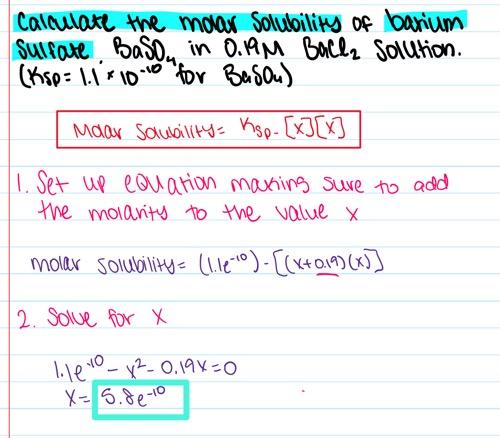 Calculate the molar solubility of barium
sulfate, BaSO₄ in 0.19M BaCl₂ solution.
(Ksp = 1.1 * 10⁻¹⁰ for BaSO₄)
Molar solubility = Ksp - [x][x]
1. Set up equation making sure to add
the molarity to the value x
molar solubility = (1.1e⁻¹⁰) - [(x+0.19)(x)]
2. Solve for x
1.1e⁻¹⁰ - x² - 0.19x = 0
x = 5.8e⁻¹⁰